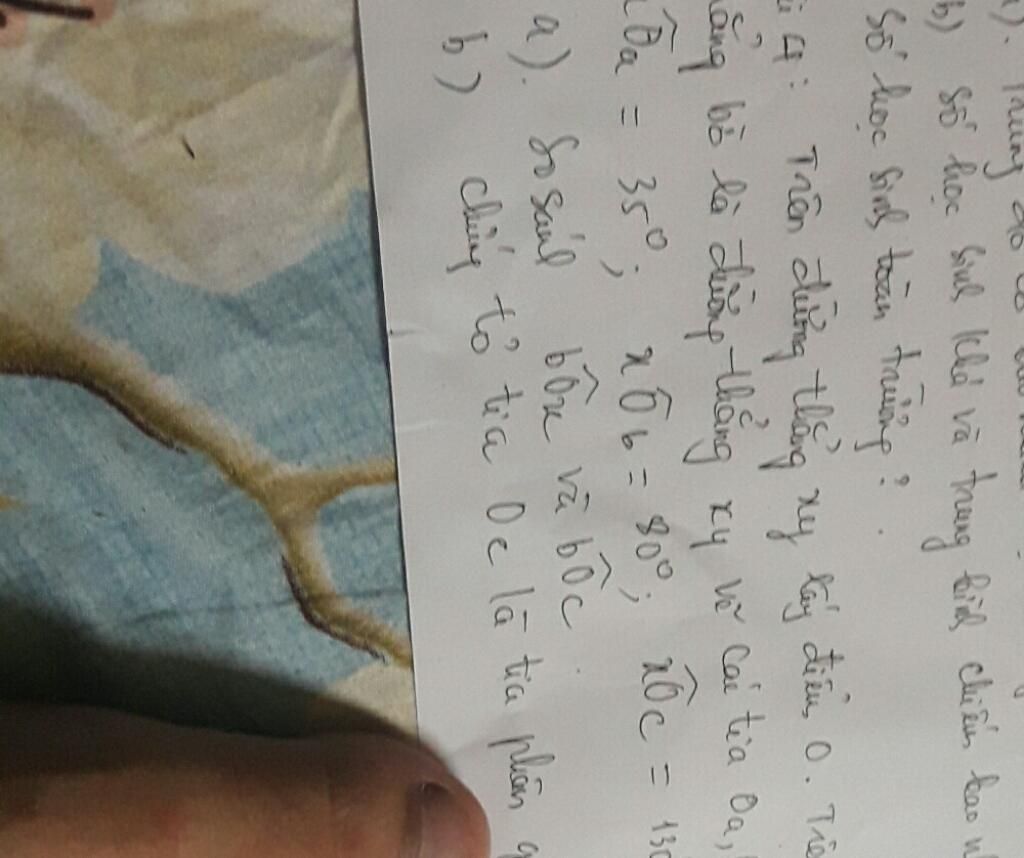 b) Số học sinh khá và trung bình chiếm bao
Số học sinh toàn trường?
4: Trên đường thẳng xy lấy điểm O. Trê
bờ là đường thẳng xy vẽ các tia Oa,
xÔa = 35°; xÔb = 80°; xÔc = 130
a). So sánh bÔx và bÔc
b) Chứng tỏ tia Oc là tia phân g